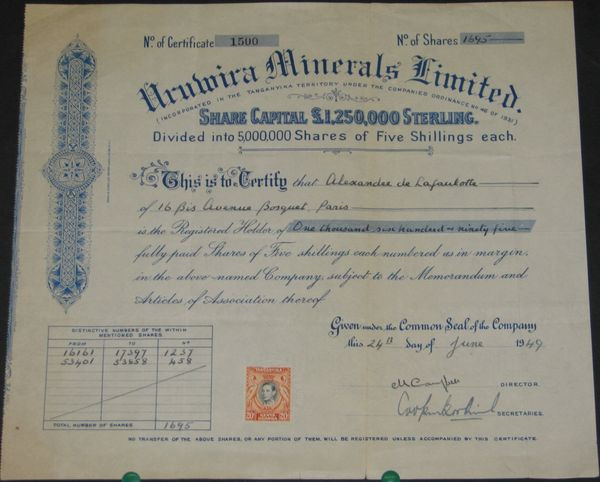 No. of Certificate 1500
No. of Shares 1695
Uruwira Minerals Limited.
(INCORPORATED IN THE TANGANYIKA TERRITORY UNDER THE COMPANIES ORDINANCE No 46 OF 1931)
SHARE CAPITAL £1,250,000 STERLING.
Divided into 5,000,000 Shares of Five Shillings each.
This is to Certify that Alexandre de
of 16 Bis Avenue Bosquet, Paris
is the Registered Holder of One thousand six hundred & ninety five
fully paid Shares of Five shillings each numbered as in margin,
in the above-named Company, subject to the Memorandum and
Articles of Association thereof
Given under the Common Seal of the Company
this 24th day of June 1949
DISTINCTIVE NUMBERS OF THE WITHIN
MENTIONED SHARES.
FROM TO No
16161 17397 1237
53401 53858 458
TOTAL NUMBER OF SHARES 1695
TANGANYIKA
20 20
DIRECTOR.
SECRETARIES.
NO TRANSFER OF THE ABOVE SHARES, OR ANY PORTION OF THEM, WILL BE REGISTERED UNLESS ACCOMPANIED BY THIS CERTIFICATE.